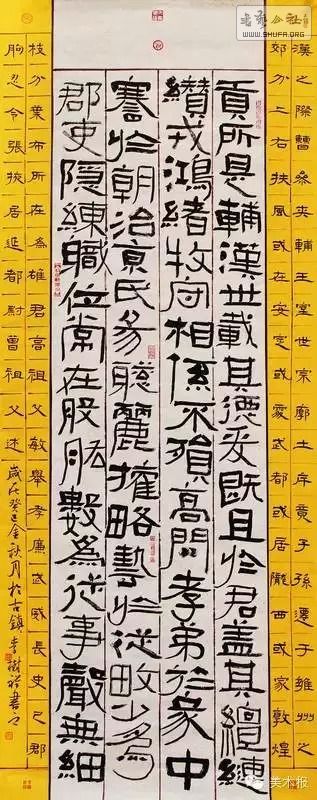 書法公社
WWW.SHUFA.ORG
漢之際曹參夾輔王室世宗廓土斥竟子孫遷于雍州之
郊分止右扶風或在安定或處武都或居隴西或家敦煌
貢所是輔漢世載其德爰既且於君蓋其繵縺
纘戎鴻緒牧守相係不殞高問孝弟於家中
謇於朝治京氏易聰麗權略藝於從畋少為
郡吏隱練職位常在股肱數為從事聲無細
枝分葉布所在為雄君高祖父敏舉孝廉武威長史巴郡
朐忍令張掖居延都尉曾祖父述 歲次癸巳金秋月於古鎮李樹祥書之
美术报